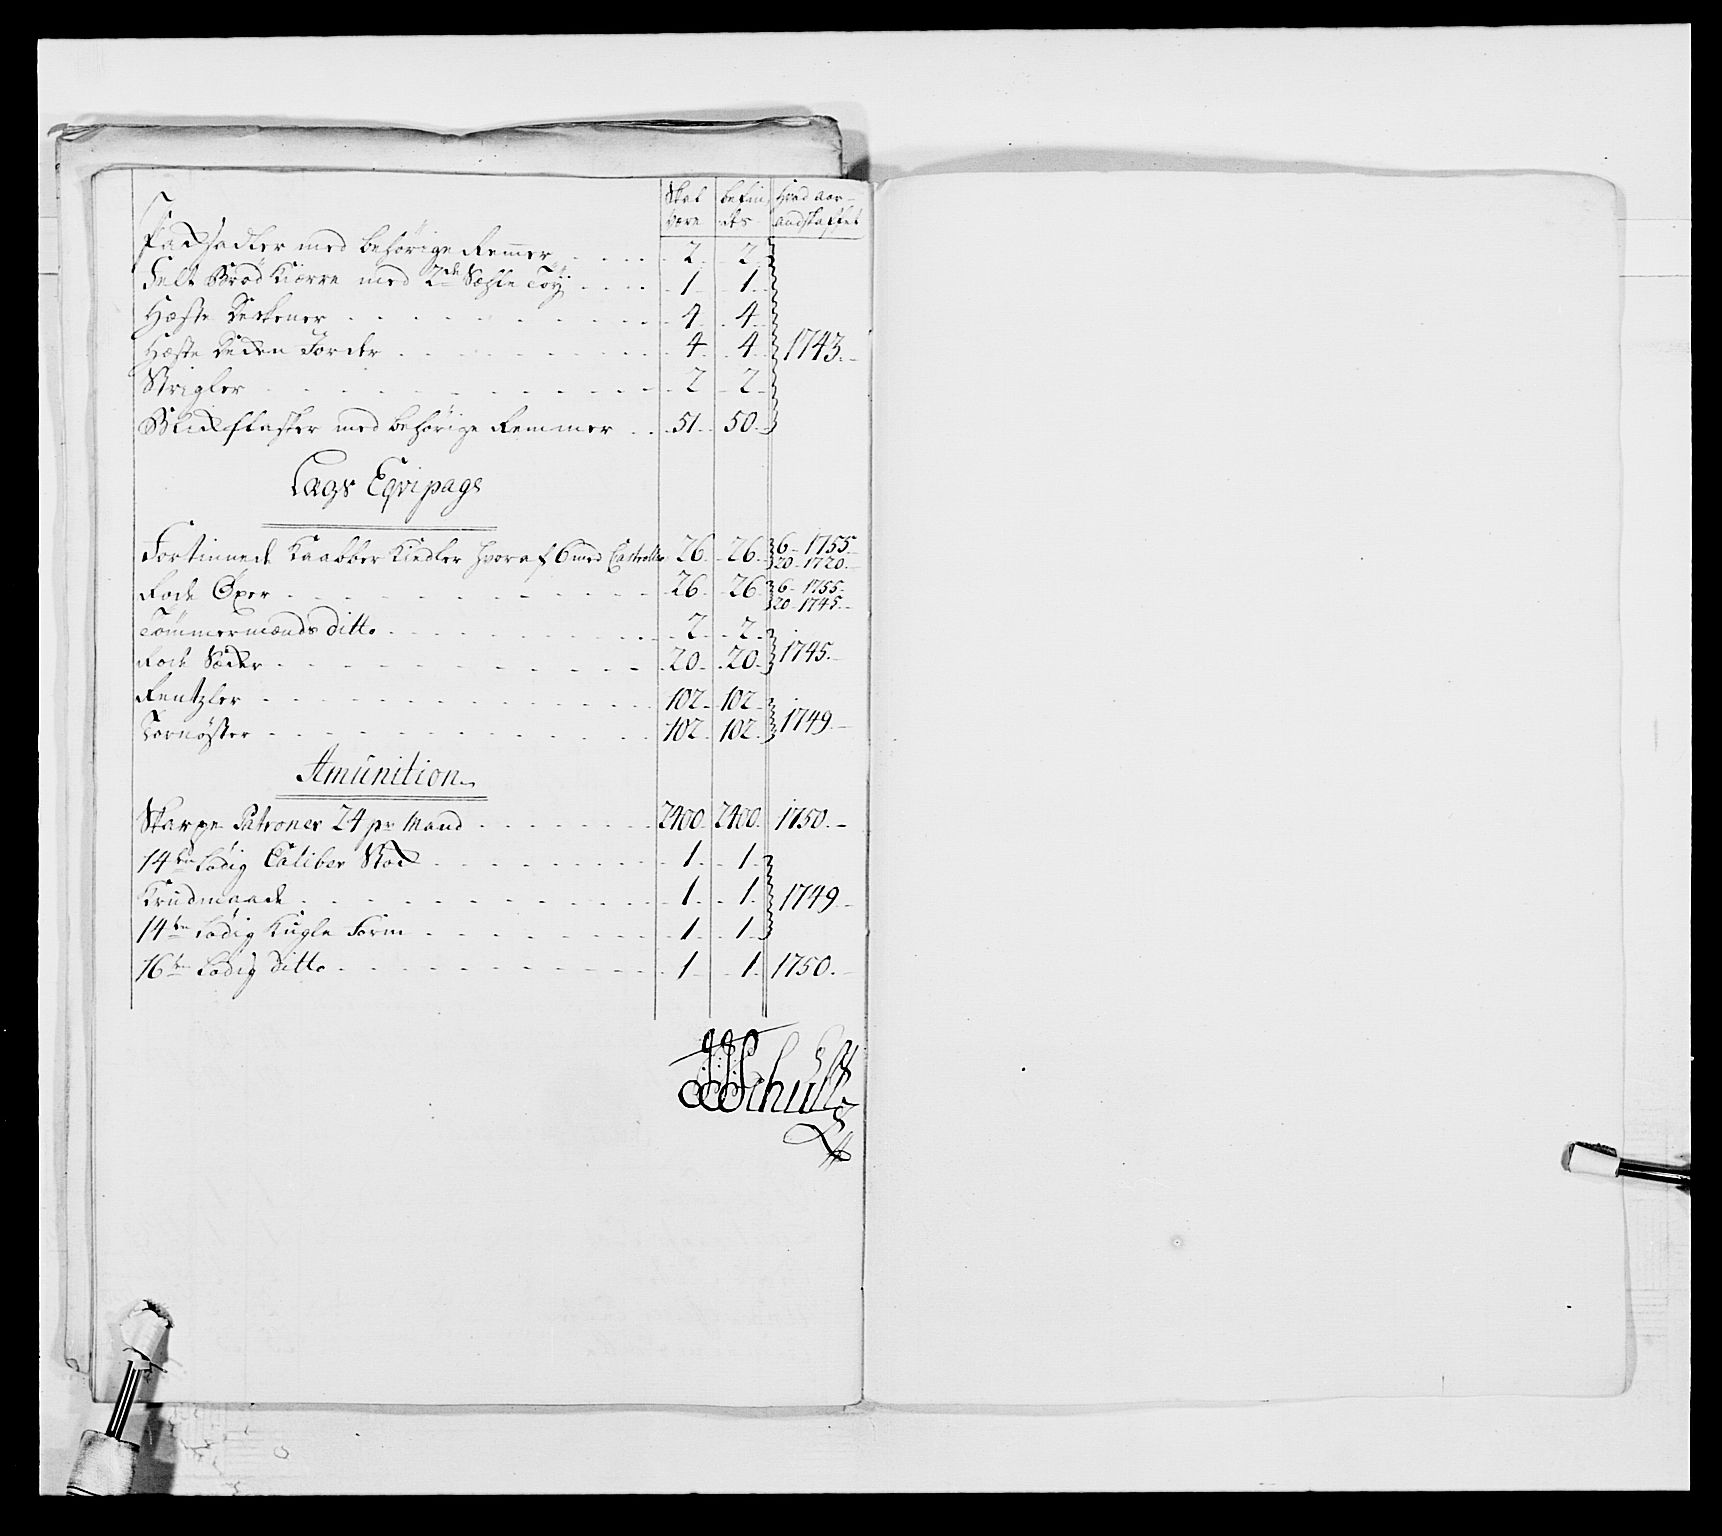 Skal være | befindes | Hvad aar andskaffet
Padsadler med behørige Remer | 2 | 2
Felt Brød Kiærre med 2de Sæhle Tøÿ | 1 | 1
Hæste Dekener | 4 | 4
Hæste Deken Forder | 4 | 4 | 1743.
Strigler | 2 | 2
Blikflasker med behørige Remmer | 51 | 50
Lags Eqvipage
Fortinnede Kaabber Kiedler hvoraf 6 med Castroller | 26 | 26 | 6 - 1755. 20 - 1720.
Rode Øxer | 26 | 26 | 6 - 1755. 20 - 1745.
Tømmermænds ditto | 2 | 2
Rode | 20 | 20 | 1745.
Rentzler | 102 | 102
Tornøster | 102 | 102 | 1749.
Amunition
Skarpe Patroner 24 pr Mand | 2400 | 2400 | 1750.
14ten Lødig Caliber Stok | 1 | 1
Krudmaade | 1 | 1 | 1749
14ten Lødig Kugle Form | 1 | 1
16ten Lødig Ditto | 1 | 1 | 1750.
Schultz